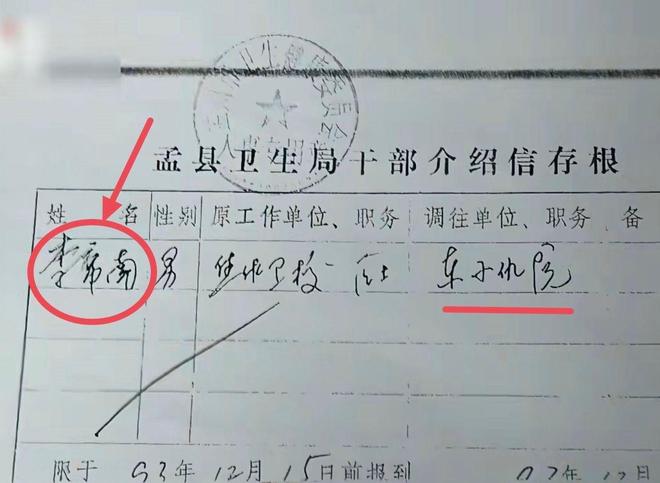 卫生健康委员会
孟县卫生局干部介绍信存根
姓 名 性别 原工作单位、职务 调往单位、职务 备
李席南 男 卫校 医士 东小仇院
限于 93年12月15日前报到